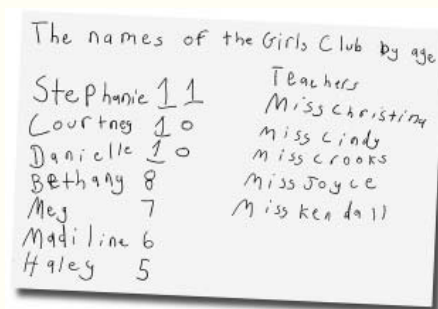 The names of the Girls Club by age
Stephanie 11
Courtney 10
Danielle 10
Bethany 8
Meg 7
Madiline 6
Haley 5
Teachers
Miss Christina
Miss Cindy
Miss Crooks
Miss Joyce
Miss Kendall